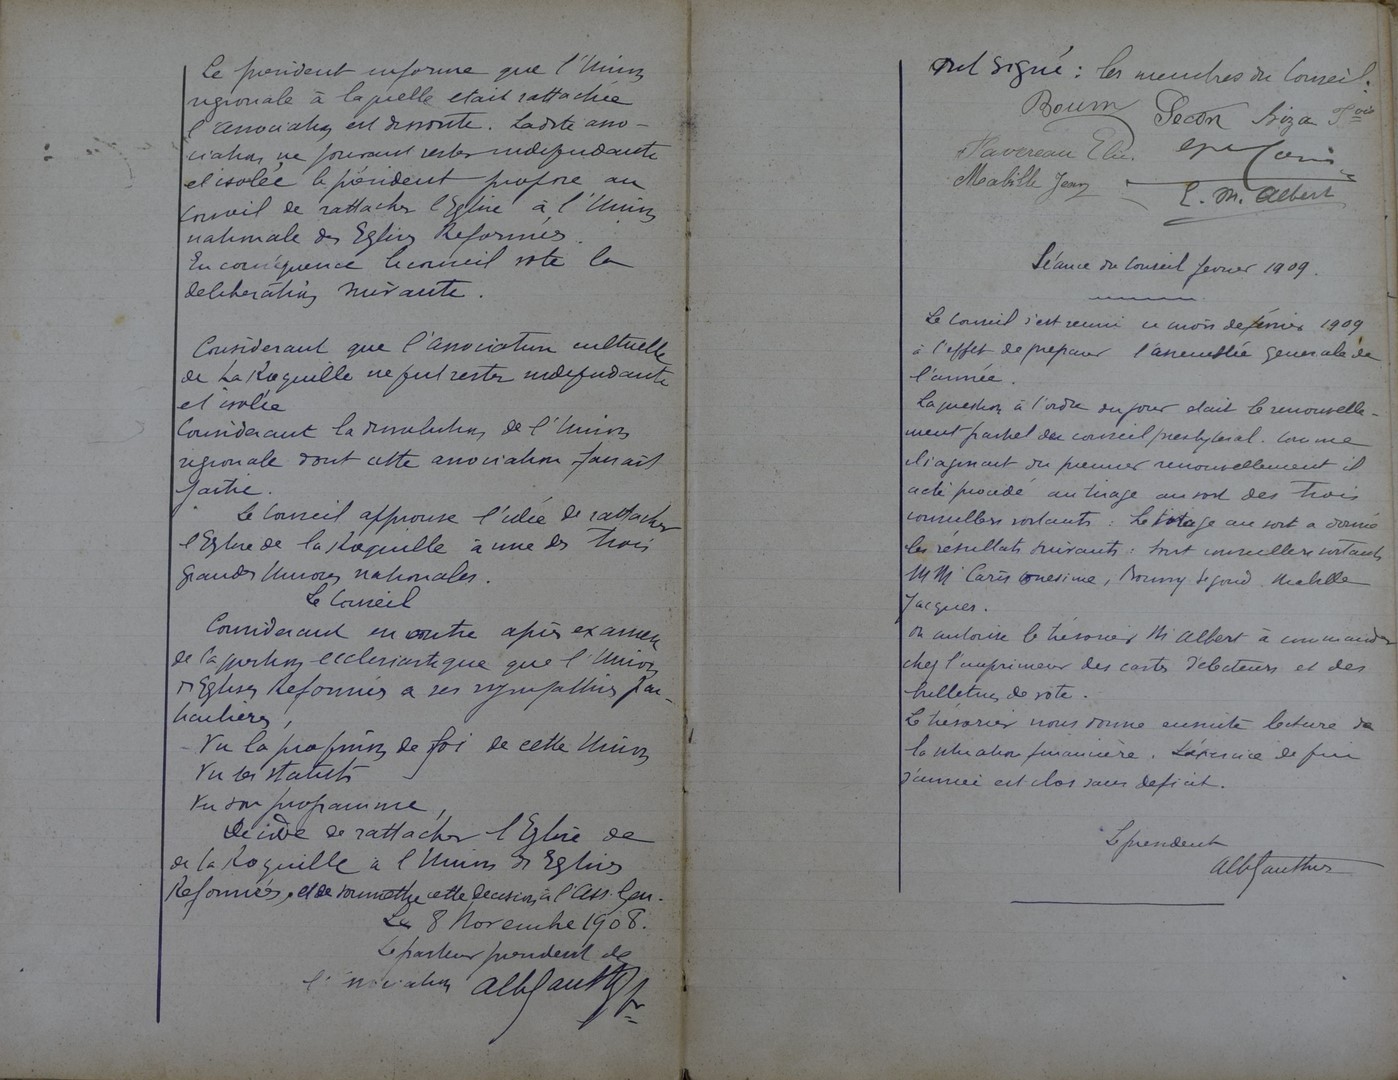 Le président informe que l'Union
régionale à laquelle etait rattachée
l'Association est dissoute. Ladite asso-
ciation ne pouvant rester independante
et isolée le président propose au
Conseil de rattacher l'Eglise à l'Union
nationale des Eglises Reformées.
En conséquence le conseil vote la
deliberation suivante.
Considerant que l'association cultuelle
de La Roquille ne peut rester independante
et isolée
Considerant la dissolution de l'Union
regionale dont cette association faisait
partie.
Le Conseil approuve l'idée de rattacher
l'Eglise de la Roquille à une des trois
grandes Unions nationales.
Le Conseil
Considerant en outre après examen
de la question ecclesiastique que l'Union
d'Eglises Reformées a ses sympathies par-
ticulières,
Vu la profession de foi de cette Union
Vu ses statuts
Vu son programme,
Decide de rattacher l'Eglise de
de la Roquille à l'Union des Eglises
Reformées, et de soumettre cette decision à l'Ass. Gen.
Le 8 Novembre 1908.
Le pasteur president de
l'association Alb Gauthier
Ont signé : les membres du Conseil :
Bourn Secon
Favereau Elie.
Mabille Jean
E. M. Albert
Séance du Conseil fevrier 1909.
Le Conseil s'est reuni ce mois de février 1909
à l'effet de preparer l'assemblée generale de
l'année.
La question à l'ordre du jour etait le renouvelle-
ment partiel du conseil presbyteral. Comme
il s'agissait du premier renouvellement il
a été procédé au tirage au sort des trois
conseillers sortants : Le tirage au sort a donné
les résultats suivants : sont conseillers sortants
MM Caris onesime, Mabille
Jacques.
On autorise le trésorier M Albert à commander
chez l'imprimeur des cartes d'électeurs et des
bulletins de vote.
Le trésorier nous donne ensuite lecture de
la situation financière. L'exercice de fin
d'année est clos sans deficit.
Le president
Alb Gauthier